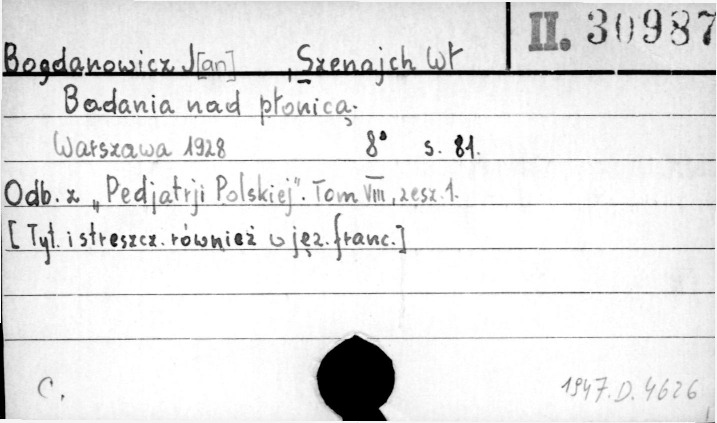 II. 30987
Bogdanowicz J[an] , Szenajch Wł
Badania nad płonicą.
Warszawa 1928 8° s. 81.
Odb. z „Pedjatrji Polskiej". Tom VIII, zesz. 1.
[Tyt. i streszcz. również w jęz. franc.]
C. 1947.D.4626